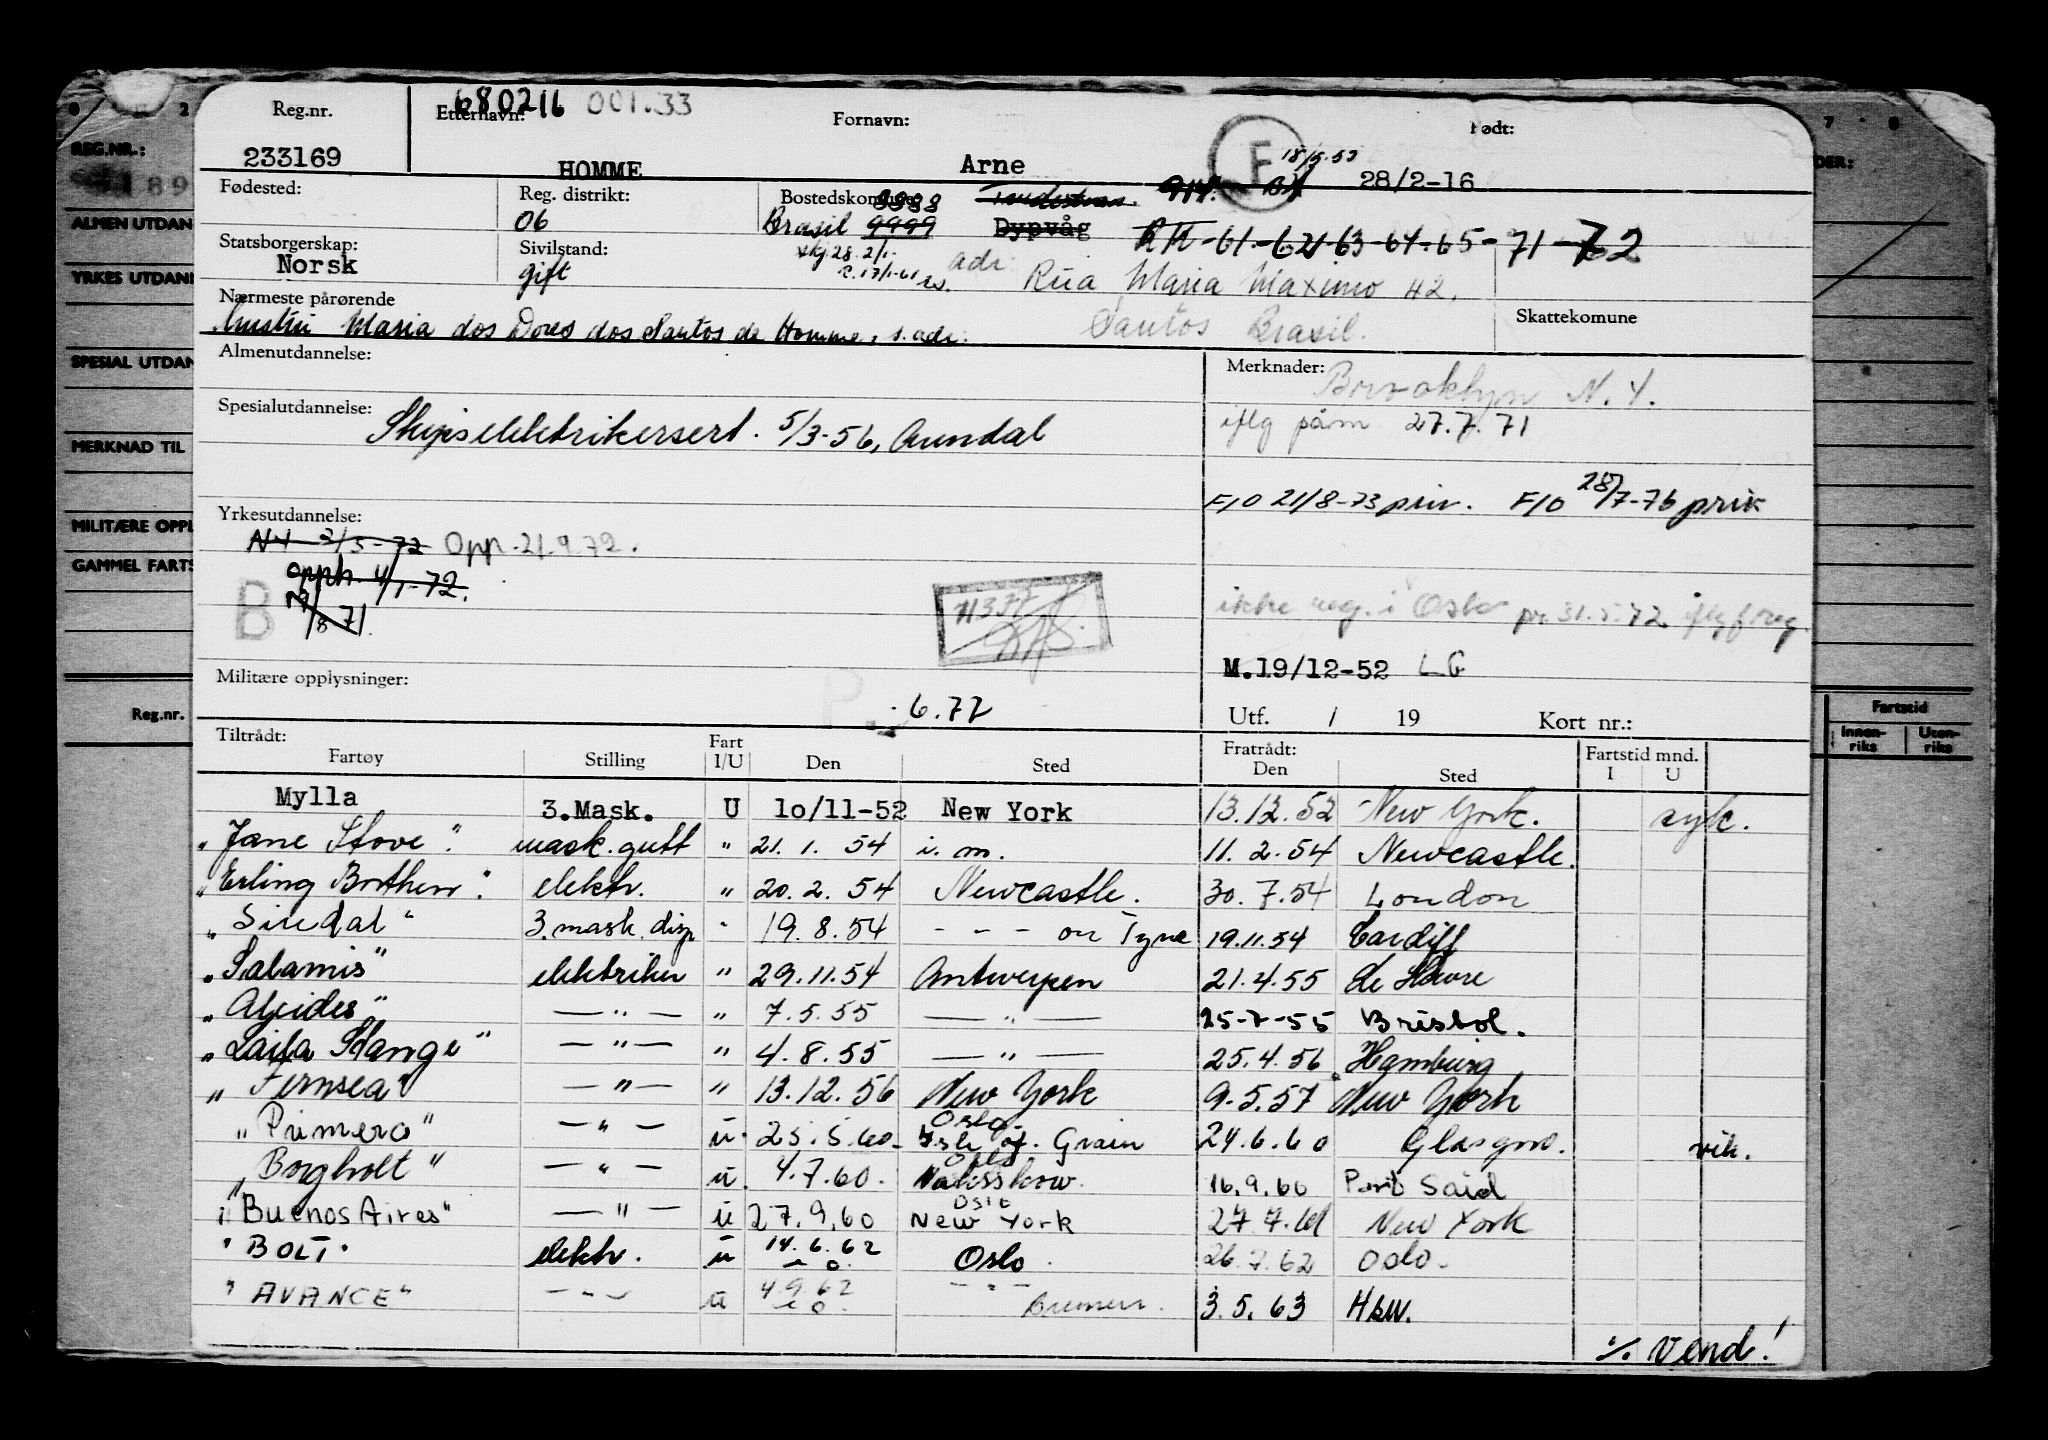 680216 001.33
Reg.nr. Etternavn: Fornavn: Født:
233169 HOMME Arne F 18/5.53 28/2-16
Fødested: Reg. distrikt: Bostedskommune 9988
06 Brasil 9999 Dypvåg RK-61-62-63-64-65-71-72
Statsborgerskap: Sivilstand:
Norsk gift adr: Rua Maria Maximo 42,
Nærmeste pårørende Skattekomune
hustru Maria dos Dores dos Santos de Homme, s. adr: Santos Brasil.
Almenutdannelse: Merknader: Brooklyn N.Y.
Spesialutdannelse: iflg påm 27.7.71
Skipselektrikersert. 5/3-56, Arendal
F/O 21/8-73 priv. F/O 28/7-76 priv
Yrkesutdannelse:
N4 3/5-72 Opp. 21.9.72.
opph. 4/1-72.
B 19/8 71.
ikke reg. i Oslo pr. 31.5.72 iflg f.reg.
M.19/12-52 LG
Militære opplysninger:
P. 6.77
Utf. / 19 Kort nr.:
Tiltrådt: Fratrådt: Fartstid mnd.
Fartøy Stilling Fart I/U Den Sted Den Sted I U
Mylla 3.Mask. U 10/11-52 New York 13.12.52 New York. syk.
"Jane Stove". mask. gutt " 21. 1. 54 i. m. 11. 2. 54 Newcastle.
"Erling Borthen". elektr. " 20. 2. 54 Newcastle. 30. 7. 54 London
"Siredal" 3. mask. disp " 19. 8. 54 - - - on Tyne 19.11.54 Cardiff
"Salamis" elektriker " 29.11.54 Antwerpen 21.4.55 le Havre
"Alcides" — " — " 7. 5. 55 — " — 25-7-55 Bristol.
"Laila Stange" — " — " 4. 8. 55 — " — 25.4.56 Hamburg
"Fernsea" — " — " 13.12.56 New York 9.5.57 New York
"Primero" — " — u. 25.5.60 Oslo Isle of. Grain 24.6.60 Glasgow. vik.
"Borgholt" — " — u. 4.7.60. Oslo Naksskow. 16.9.60 Port Said
"Buenos Aires" — " — u 27.9.60 Oslo New York 27.7.61 New York
"BOLT" elektr. u 14.6.62 Oslo. 26.7.62 Oslo.
"AVANCE" — " — u 4.9.62 - " - Bremen. 3.5.63 Hbw.
%. Vend!
REG.NR.:
ALMEN UTDAN
YRKES UTDAN
SPESIAL UTDAN
MERKNAD TIL
MILITÆRE OPPL
GAMMEL FARTS
Reg.nr.
Fartstid
Innen-riks Uten-riks